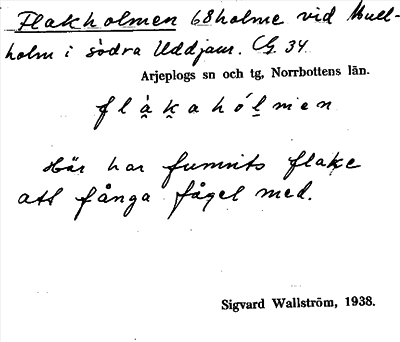 Flakholmen 68 holme vid Mull-
holm i södra Uddjaur. Cg. 34.
Arjeplogs sn och tg, Norrbottens län.
flàkahólmen
Här har funnits flake
att fånga fågel med.
Sigvard Wallström, 1938.